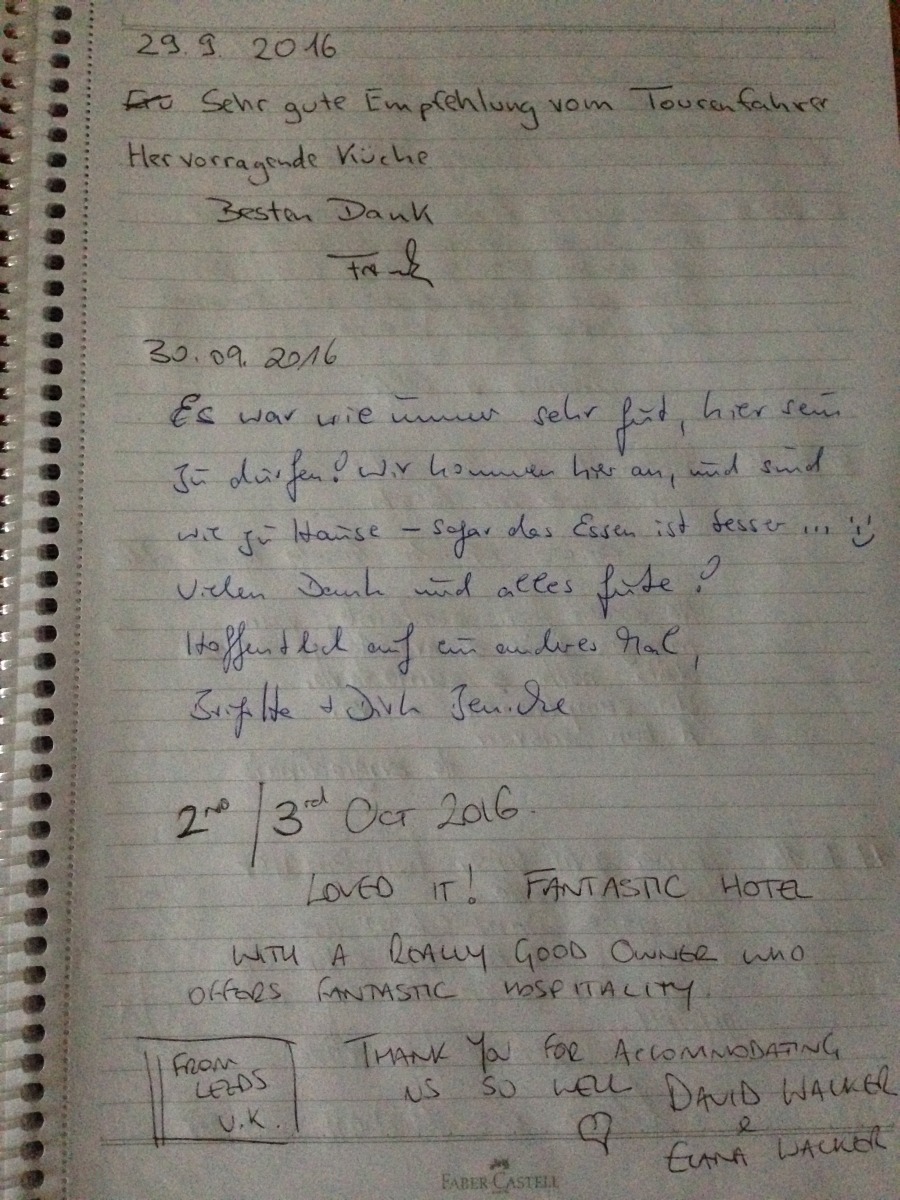 29.9. 2016
Sehr gute Empfehlung vom Tourenfahrer
Hervorragende Küche
Besten Dank
Frank
30.09.2016
Es war wie immer sehr gut, hier sein
zu dürfen! Wir kommen hier an, und sind
wie zu Hause – sogar das Essen ist besser ... :)
Vielen Dank und alles Gute!
Hoffentlich auf ein anderes Mal,
Brigitte + Dirk
2ND / 3rd OCT 2016.
LOVED IT! FANTASTIC HOTEL
WITH A REALLY GOOD OWNER WHO
OFFERS FANTASTIC HOSPITALITY.
THANK YOU FOR ACCOMMODATING
US SO WELL
♡
DAVID WALKER
&
WALKER
FROM
LEEDS
U.K.
FABER-CASTELL